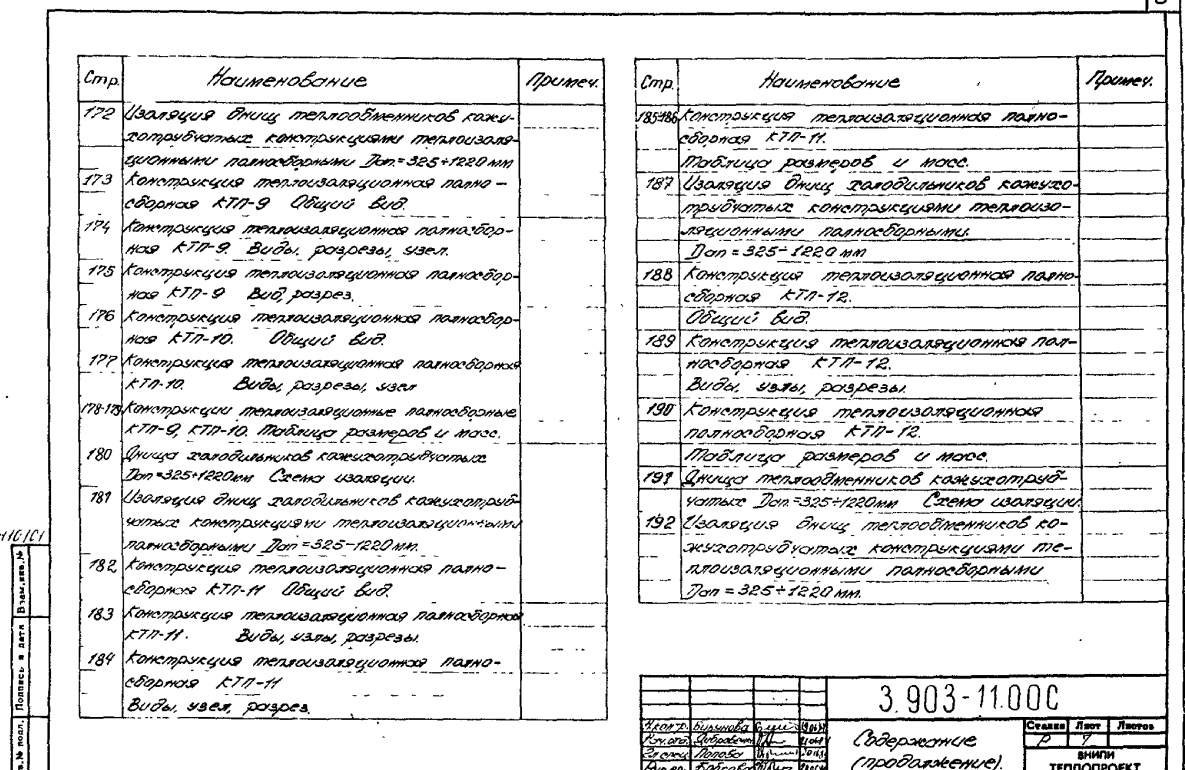 Стр. Наименование Примеч.
172 Изоляция днищ теплообменников кожу-
хотрубчатых конструкциями теплоизоля-
ционными полносборными Dап=325÷1220 мм
173 Конструкция теплоизоляционная полно-
сборная КТП-9 Общий вид.
174 Конструкция теплоизоляционная полносбор-
ная КТП-9. Виды, разрезы, узел.
175 Конструкция теплоизоляционная полносбор-
ная КТП-9 Вид, разрез.
176 Конструкция теплоизоляционная полносбор-
ная КТП-10. Общий вид.
177 Конструкция теплоизоляционная полносборная
КТП-10. Виды, разрезы, узел
178-179 Конструкции теплоизоляционные полносборные
КТП-9, КТП-10. Таблица размеров и масс.
180 Днища холодильников кожухотрубчатых
Dап=325÷1220мм Схема изоляции.
181 Изоляция днищ холодильников кожухотруб-
чатых конструкциями теплоизоляционными
полносборными Dап=325-1220 мм.
182 Конструкция теплоизоляционная полно-
сборная КТП-11 Общий вид.
183 Конструкция теплоизоляционная полносборная
КТП-11. Виды, узлы, разрезы.
184 Конструкция теплоизоляционная полно-
сборная КТП-11
Виды, узел, разрез.
Стр. Наименование Примеч.
185-186 Конструкция теплоизоляционная полно-
сборная КТП-11.
Таблица размеров и масс.
187 Изоляция днищ холодильников кожухо-
трубчатых конструкциями теплоизо-
ляционными полносборными.
Dап=325÷1220 мм
188 Конструкция теплоизоляционная полно-
сборная КТП-12.
Общий вид.
189 Конструкция теплоизоляционная пол-
носборная КТП-12.
Виды, узлы, разрезы.
190 Конструкция теплоизоляционная
полносборная КТП-12.
Таблица размеров и масс.
191 Днища теплообменников кожухотруб-
чатых Dап=325÷1220мм Схема изоляции.
192 Изоляция днищ теплообменников ко-
жухотрубчатых конструкциями те-
плоизоляционными полносборными
Dап=325÷1220 мм.
Взам.инв.№
Подпись и дата
в.№ подл.
3.903-11.00С
Содержание
(продолжение).
Стадия Лист Листов
Р 7
ВНИПИ
ТЕПЛОПРОЕКТ
Н.контр. Бурунова
Попова